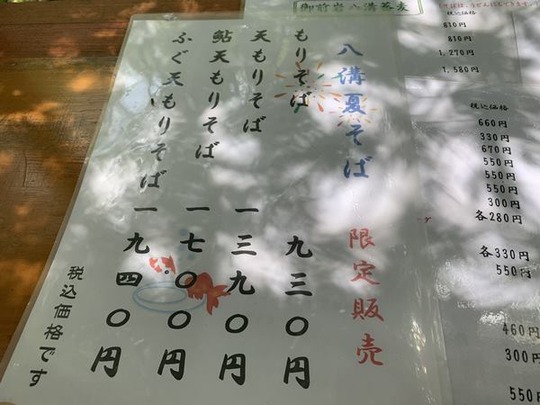 八溝夏そば 限定販売
もりそば 九三〇円
天もりそば 一三九〇円
鮎天もりそば 一七〇〇円
ふぐ天もりそば 一九四〇円
税込価格です
御前岩八溝蕎麦
税込価格
810円
810円
1,270円
1,580円
税込価格
660円
330円
670円
550円
550円
550円
300円
各280円
各330円
550円
460円
300円
550円